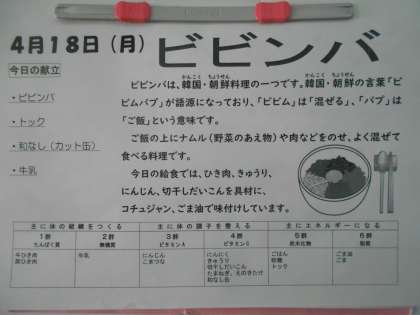 4月18日（月）
ビビンバ
今日の献立
・ビビンバ
・トック
・和なし（カット缶）
・牛乳
かんこく ちょうせん かんこく ちょうせん
ビビンバは、韓国・朝鮮料理の一つです。韓国・朝鮮の言葉「ビ
ビムバブ」が語源になっており、「ビビム」は「混ぜる」、「バブ」は
「ご飯」という意味です。
ご飯の上にナムル（野菜のあえ物）や肉などをのせ、よく混ぜて
食べる料理です。
今日の給食では、ひき肉、きゅうり、
にんじん、切干しだいこんを具材に、
コチュジャン、ごま油で味付けしています。
主に体の組織をつくる 主に体の調子を整える 主にエネルギーになる
1群 2群 3群 4群 5群 6群
たんぱく質 無機質 ビタミンA ビタミンC 炭水化物 脂質
牛ひき肉 牛乳 にんじん にんにく ごはん ごま油
豚ひき肉 こまつな きゅうり 砂糖 ごま
切干しだいこん トック
たまねぎ、えのきたけ
和なし缶